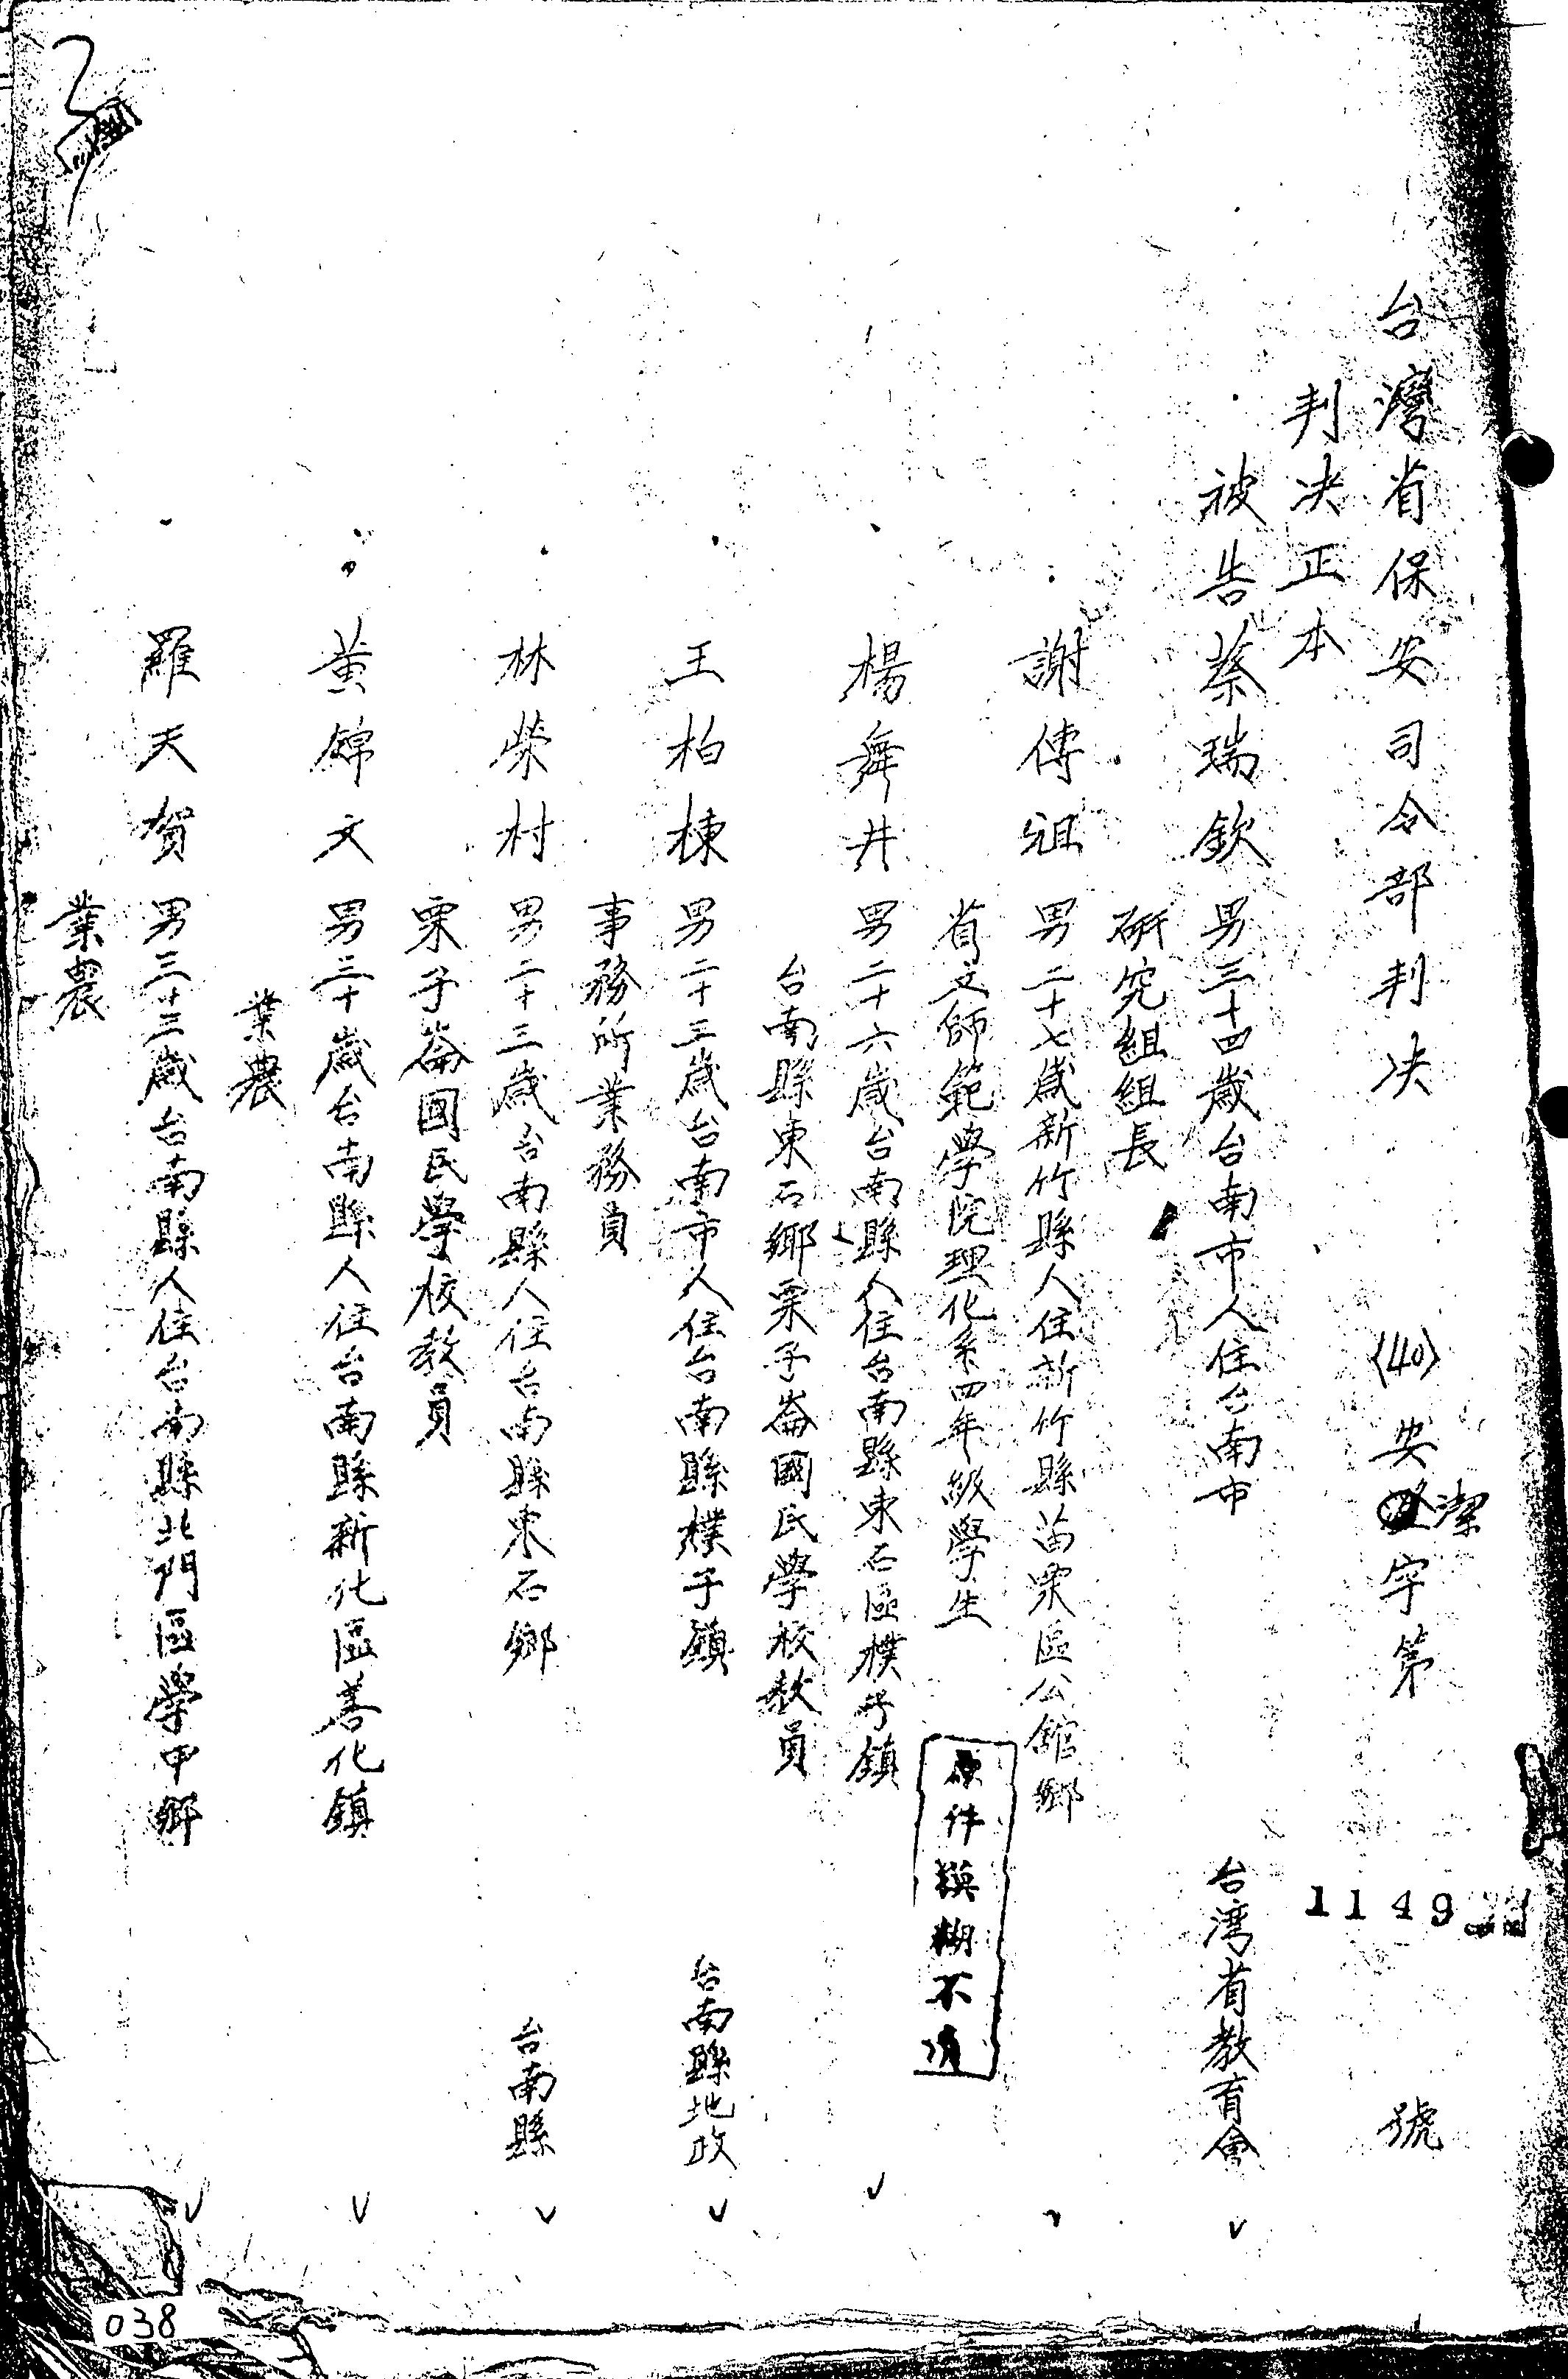 台灣省保安司令部判决 (40) 安潔字第 1149 號
判决正本
被告 蔡瑞欽 男 三十四歲 台南市人 住台南市 台湾省教育會
研究組組長
謝傳祖 男 二十七歲 新竹縣人 住新竹縣苗栗區公館鄉
省立師範學院理化系四年級學生
原件模糊不清
楊舞井 男 二十六歲 台南縣人 住台南縣東石區樸子鎮
台南縣東石鄉栗子崙國民學校教員
王柏棟 男 二十三歲 台南市人 住台南縣樸子鎮 台南縣地政
事務所業務員
林榮村 男 二十三歲 台南縣人 住台南縣東石鄉 台南縣
栗子崙國民學校教員
黃錦文 男 三十歲 台南縣人 住台南縣新化區善化鎮
業農
羅天賀 男 三十三歲 台南縣人 住台南縣北門區學甲鄉
業農
038